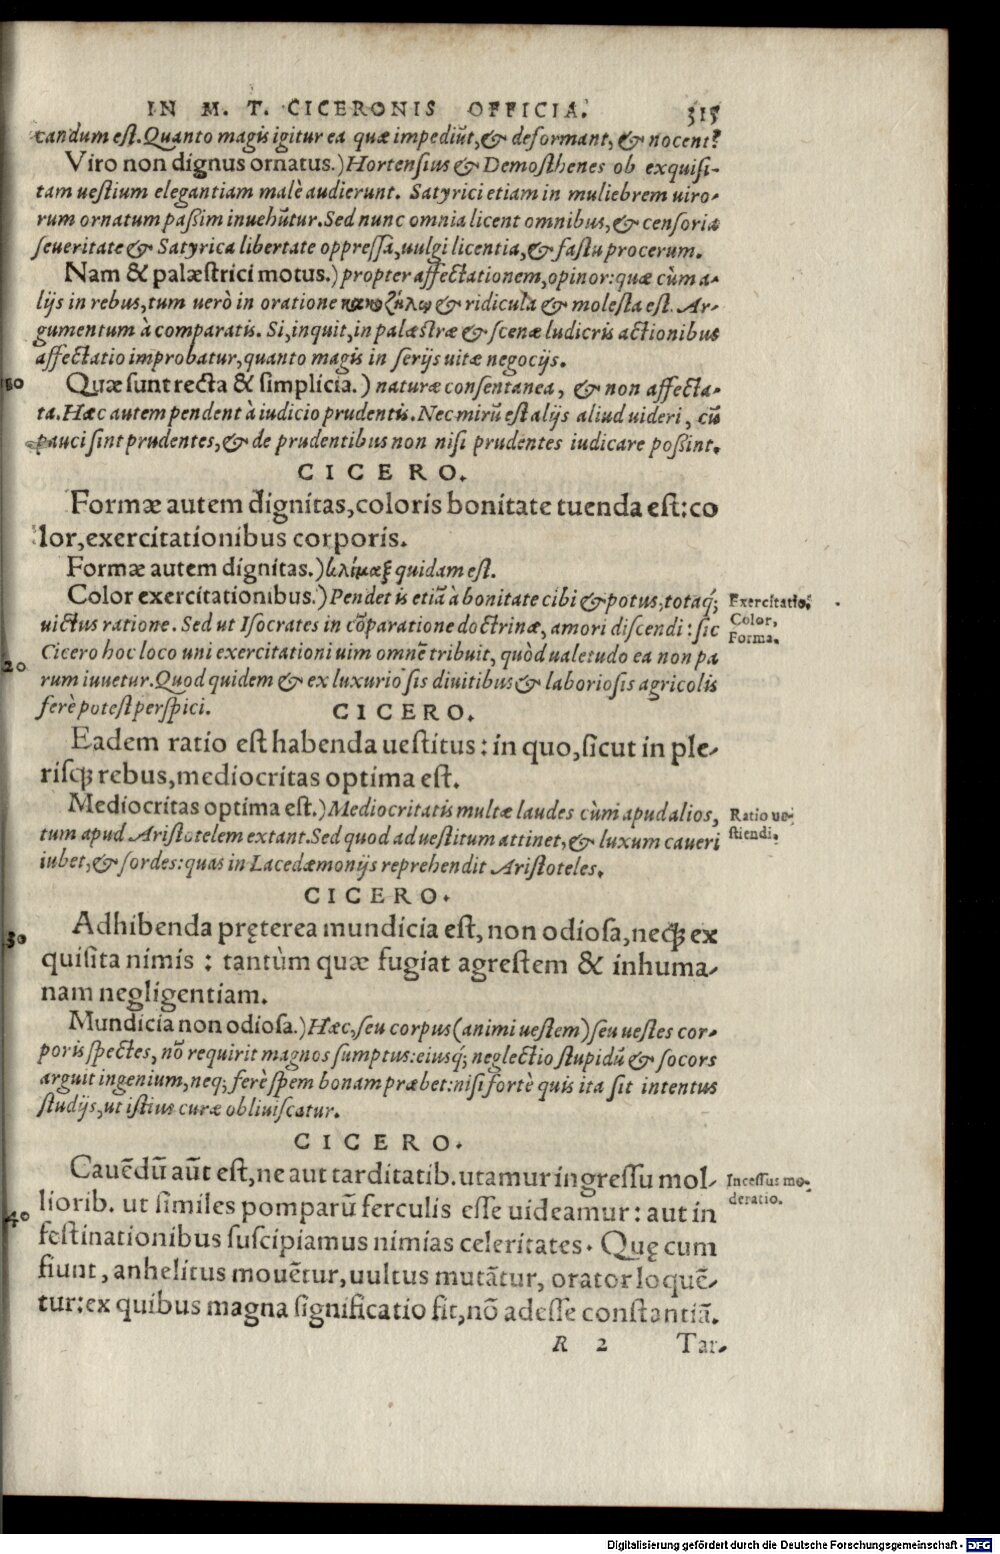 IN M. T. CICERONIS OFFICIA. 315
tandum est. Quanto magis igitur ea quæ impediūt, & deformant, & nocent?
Viro non dignus ornatus.) Hortensius & Demosthenes ob exquisi-
tam uestium elegantiam malè audierunt. Satyrici etiam in muliebrem uiro-
rum ornatum paßim inuehūtur. Sed nunc omnia licent omnibus, & censoria
seueritate & Satyrica libertate oppressa, uulgi licentia, & fastu procerum.
Nam & palæstrici motus.) propter affectationem, opinor: quæ cùm a-
lijs in rebus, tum uerò in oratione κακοζήλῳ & ridicula & molesta est. Ar-
gumentum à comparatis. Si, inquit, in palæstræ & scenæ ludicris actionibus
affectatio improbatur, quanto magis in serijs uitæ negocijs.
10 Quæ sunt recta & simplicia.) naturæ consentanea, & non affecta-
ta. Hæc autem pendent à iudicio prudentis. Nec mirū est alijs aliud uideri, cū
pauci sint prudentes, & de prudentibus non nisi prudentes iudicare poßint.
CICERO.
Formæ autem dignitas, coloris bonitate tuenda est: co
lor, exercitationibus corporis.
Formæ autem dignitas.) κλίμαξ quidam est.
Color exercitationibus.) Pendet is etiā à bonitate cibi & potus, totaq́;
Exercitatio,
uictus ratione. Sed ut Isocrates in cōparatione doctrinæ, amori discendi: sic
Color,
Forma.
Cicero hoc loco uni exercitationi uim omnē tribuit, quòd ualetudo ea non pa
20 rum iuuetur. Quod quidem & ex luxuriosis diuitibus & laboriosis agricolis
ferè potest perspici.
CICERO.
Eadem ratio est habenda uestitus: in quo, sicut in ple-
risq; rebus, mediocritas optima est.
Mediocritas optima est.) Mediocritatis multæ laudes cùm apud alios,
Ratio ue-
tum apud Aristotelem extant. Sed quod ad uestitum attinet, & luxum caueri
stiendi.
iubet, & sordes: quas in Lacedæmonijs reprehendit Aristoteles.
CICERO.
30 Adhibenda pręterea mundicia est, non odiosa, neq; ex
quisita nimis: tantùm quæ fugiat agrestem & inhuma-
nam negligentiam.
Mundicia non odiosa.) Hæc, seu corpus (animi uestem) seu uestes cor-
poris spectes, nō requirit magnos sumptus: eiusq́; neglectio stupidū & socors
arguit ingenium, neq; ferè spem bonam præbet: nisi fortè quis ita sit intentus
studijs, ut istius curæ obliuiscatur.
CICERO.
Cauēdū aūt est, ne aut tarditatib. utamur ingressu mol-
Incessus mo-
deratio.
40 liorib. ut similes pomparū ferculis esse uideamur: aut in
festinationibus suscipiamus nimias celeritates. Quę cum
fiunt, anhelitus mouētur, uultus mutātur, orator loquē-
tur: ex quibus magna significatio fit, nō adesse constantiā.
R 2 Tar-
Digitalisierung gefördert durch die Deutsche Forschungsgemeinschaft - DFG